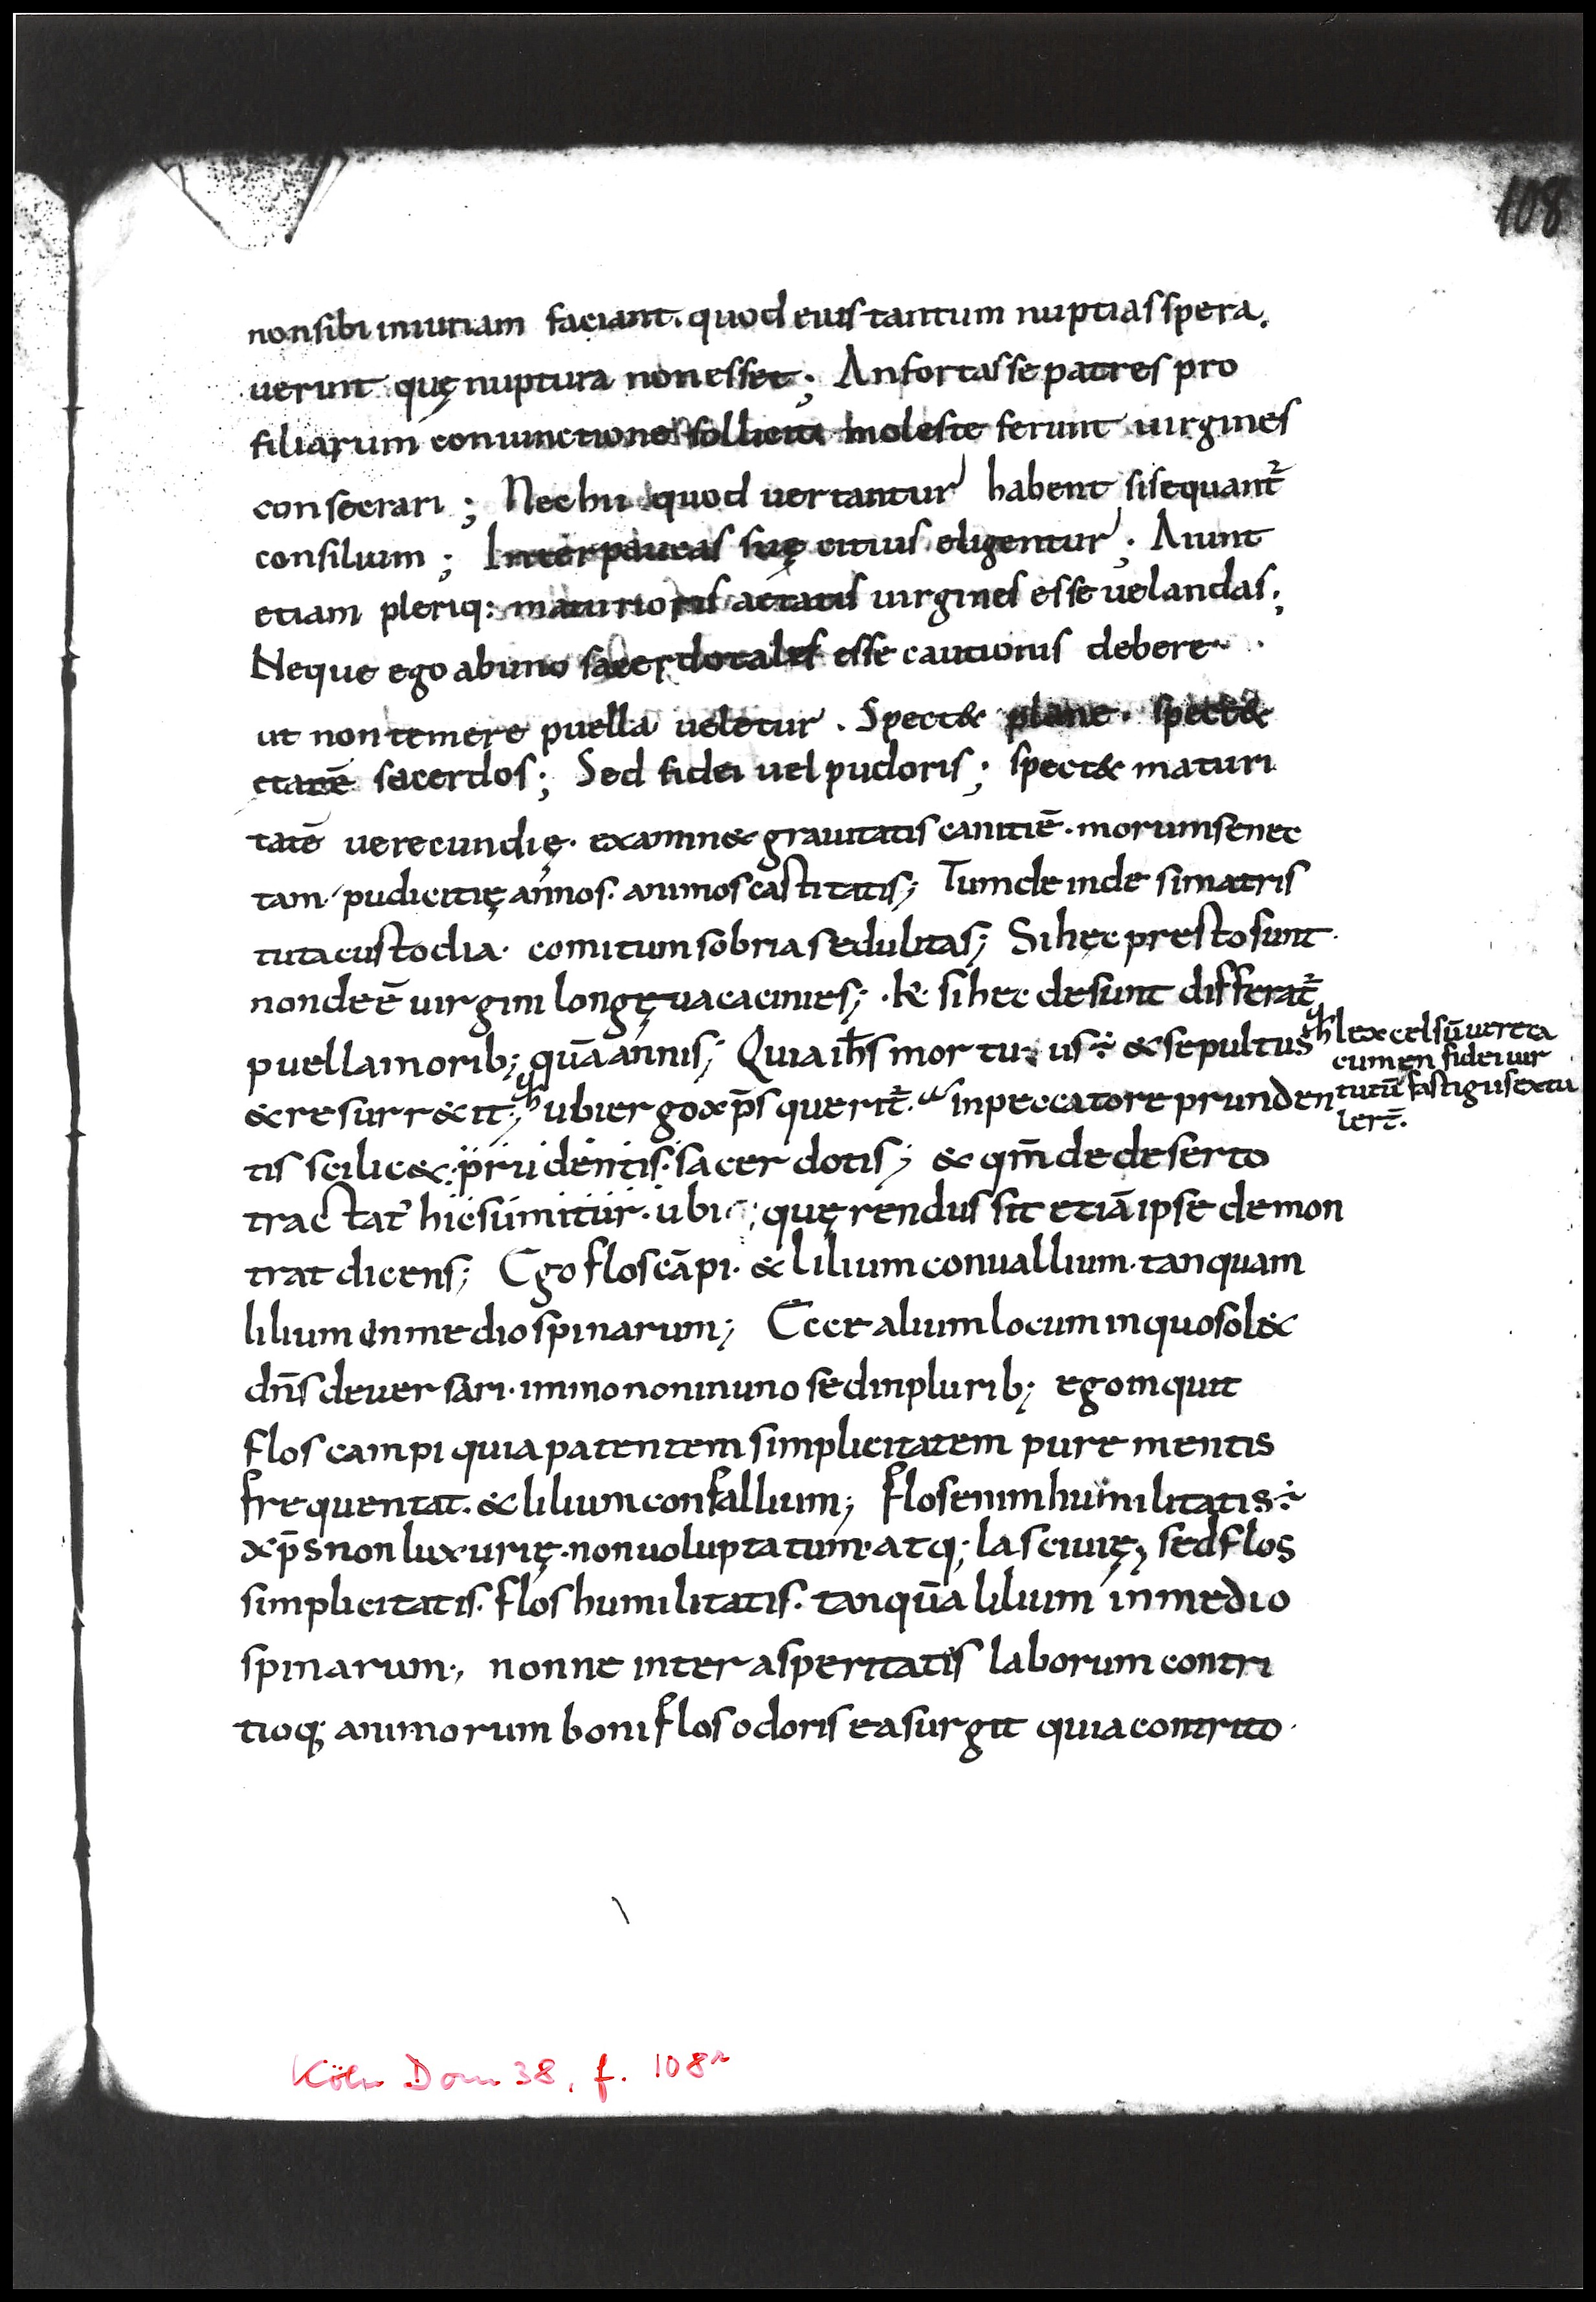 108
non sibi iniuriam faciant. quod eius tantum nuptias spera.
uerunt quę nuptura non esset; An fortasse patres pro
filiarum coniunctione solliciti moleste ferunt uirgines
consecrari; Nec hii quod uertantur habent si sequant̃
consilium; Inter paucas suę citius eligentur; Aiunt
etiam pleriq: maturioris aetatis uirgines esse uelandas;
Neque ego abuno sacerdotales esse cautionis debere
ut non temere puella veletur. Spect& plane. spect&
etatē sacerdos; Sed fidei uel pudoris; spect& maturi
tatē uerecundię. examin& grauitatis canitiē. morum senec
tam. pudicitię annos. animos castitatis; Tum deinde si matris
tuta custodia. comitum sobria sedulitas; Si hęc presto sunt.
non deē uirgini longęua cacinies; & si hec desunt differat̃
puella morib; quā annis; Quia ih̄s mortuus ÷ & sepultus
le excelsū uere ca
cumen fidei uir
tutū fastigiis extu
lert̄.
& resurr&it; ubi ergo xp̄s querit̃. in peccatore prunden
tis scilic&. prudentis. sacerdotis; & qm̄ de deserto
tractat hic sumitur. ubi quęrendus sit etiā ipse demon
trat dicens; Ego flos cāpi. & lilium conuallium. tanquam
lilium in medio spinarum; Ecce alium locum in quo sol&
dn̄s deuersari. immo non in uno sed in plurib; ego inquit
flos campi quia patentem simplicitatem pure mentis
frequentat. & lilium confallium; flos enim humilitatis ÷
xp̄s non luxurię. non uoluptatum. atq; lasciuię, sed flos
simplicitatis. flos humilitatis. tanquā lilium in medio
spinarum; nonne inter asperitatis laborum contri
tioq; animorum boni flos odoris ea surgit quia contrito.
Köln Dom 38, f. 108r